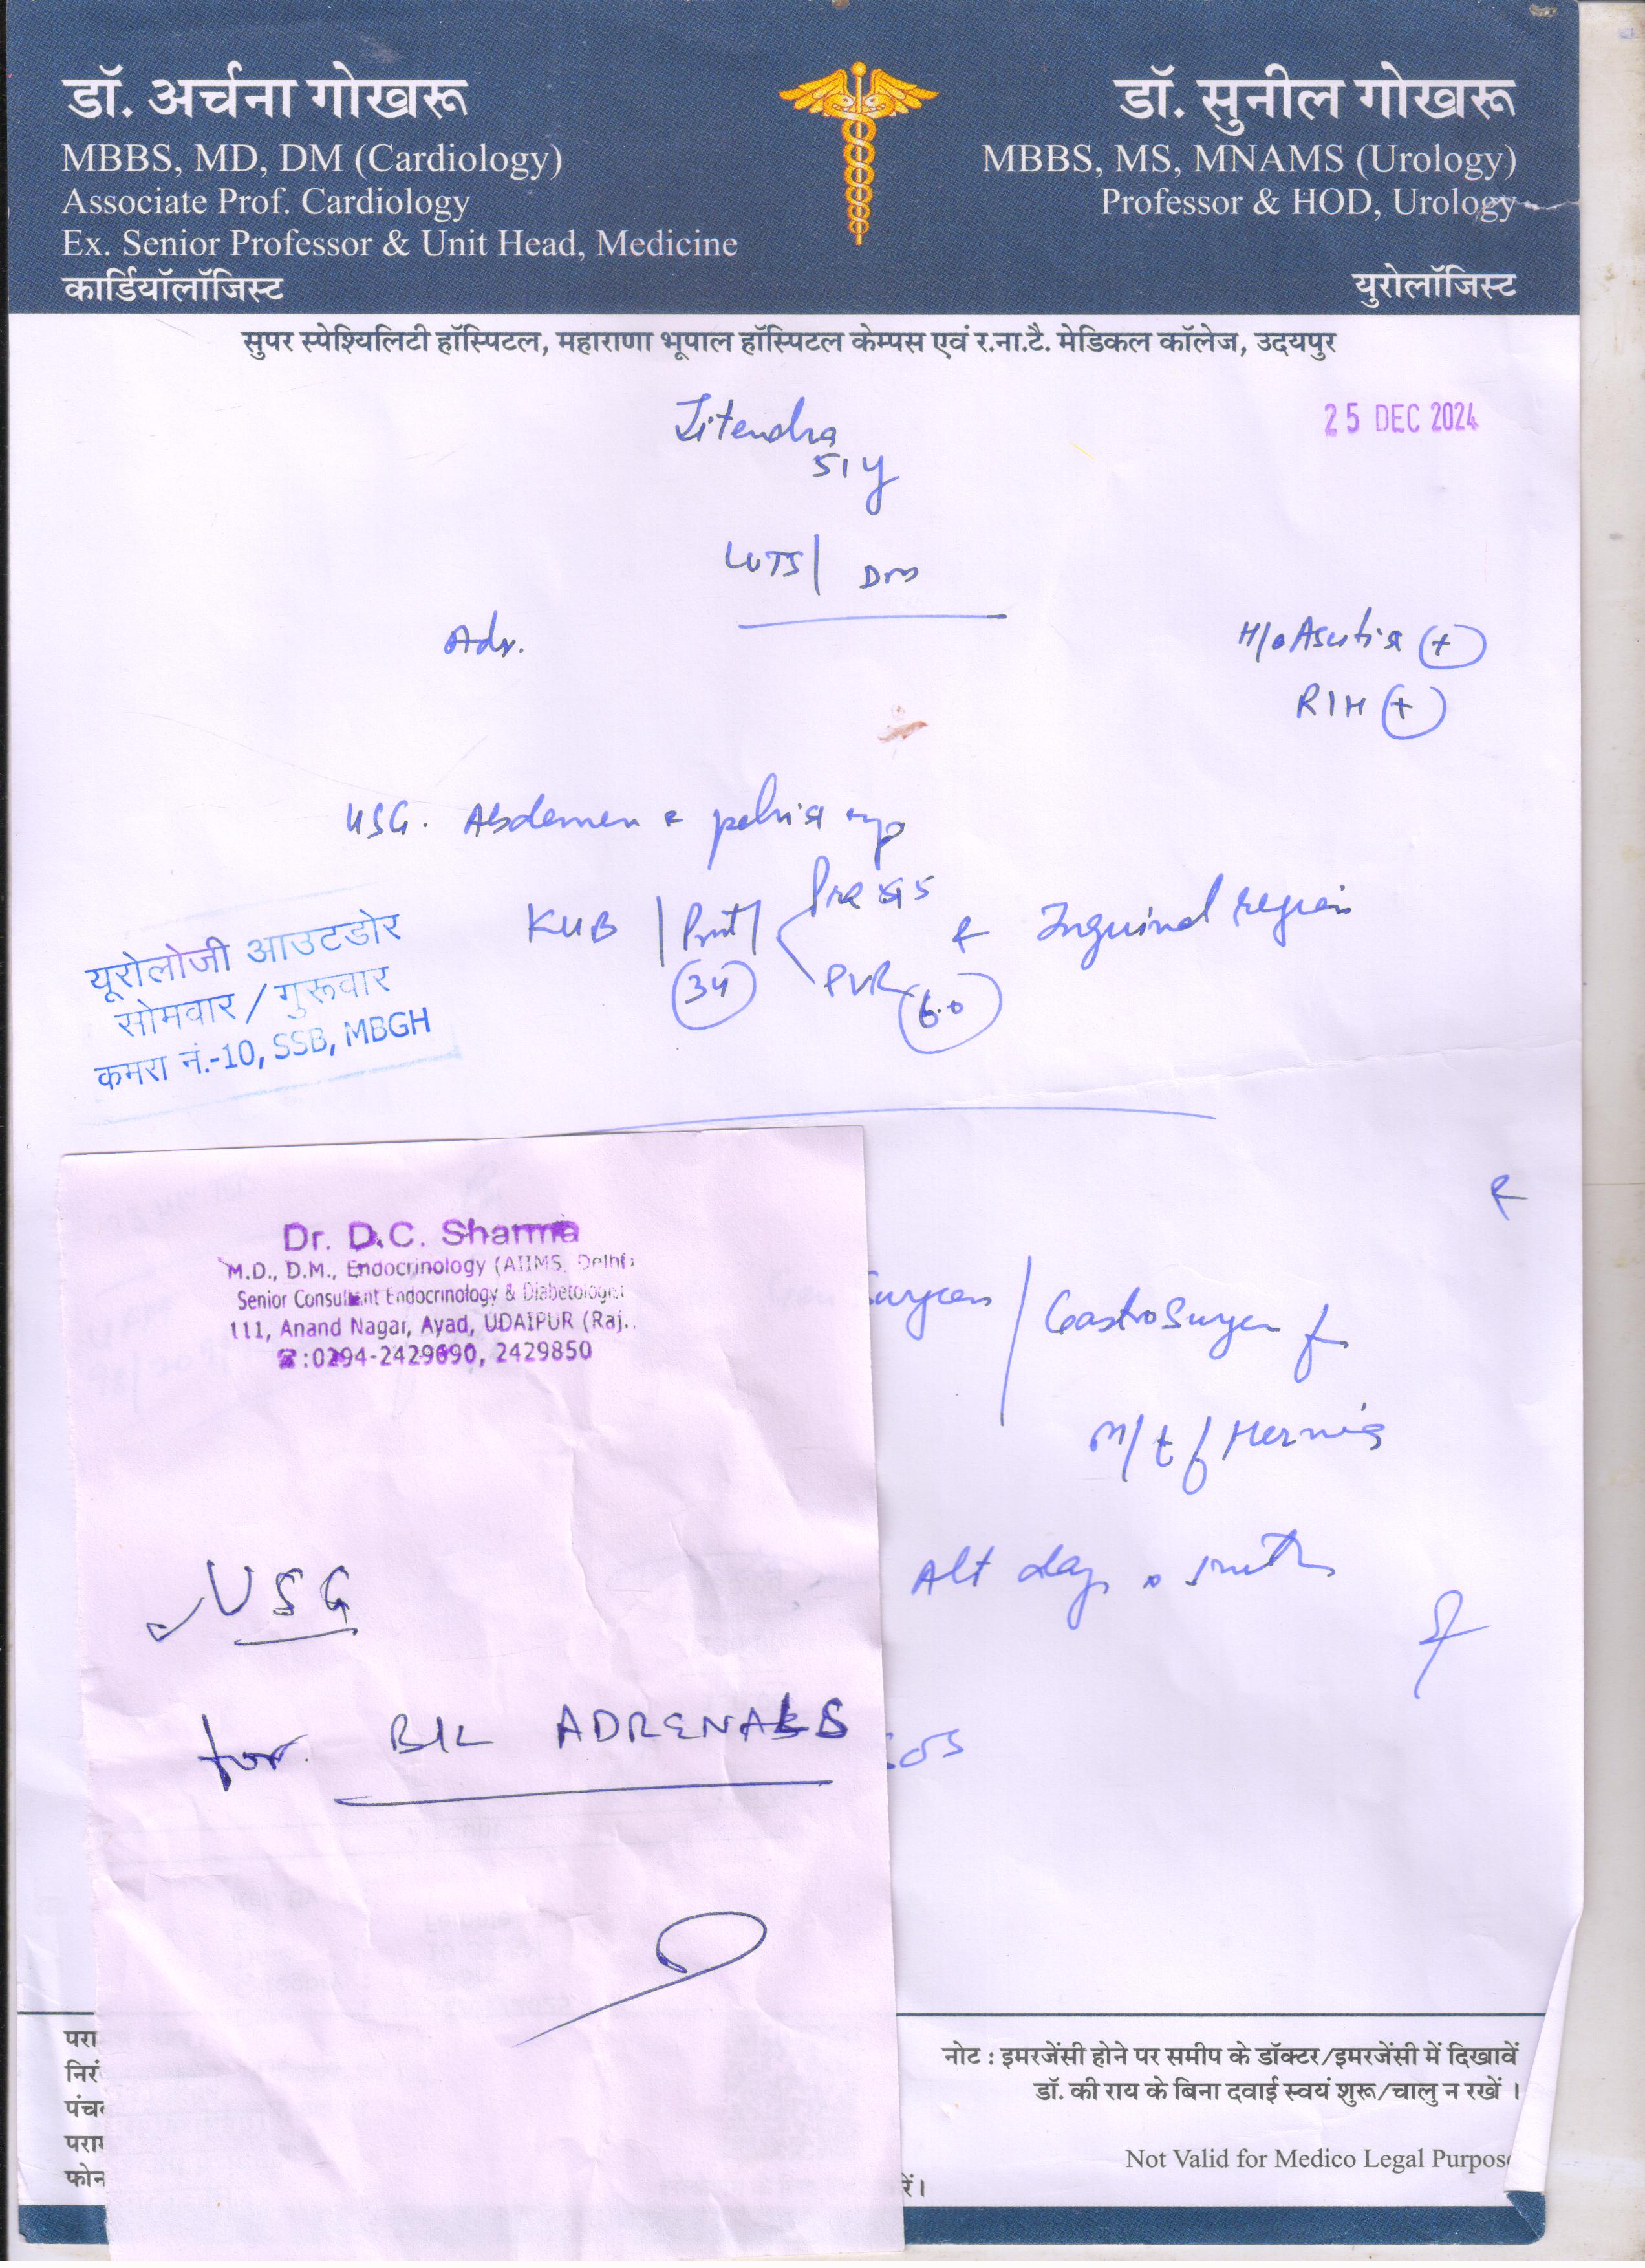 डॉ. अर्चना गोखरू
MBBS, MD, DM (Cardiology)
Associate Prof. Cardiology
Ex. Senior Professor & Unit Head, Medicine
कार्डियॉलॉजिस्ट
डॉ. सुनील गोखरू
MBBS, MS, MNAMS (Urology)
Professor & HOD, Urology
युरोलॉजिस्ट
सुपर स्पेश्यिलिटी हॉस्पिटल, महाराणा भूपाल हॉस्पिटल केम्पस एवं र.ना.टै. मेडिकल कॉलेज, उदयपुर
25 DEC 2024
Jitendra
51 y
LUTS / Dm
Adv.
H/o Ascitis +
RIH +
USG. Abdomen & pelvis
KUB / Prost /
34
PVR 60
& Inguinal region
यूरोलोजी आउटडोर
सोमवार / गुरूवार
कमरा नं.-10, SSB, MBGH
Dr. D.C. Sharma
M.D., D.M., Endocrinology (AIIMS, Delhi)
Senior Consultant Endocrinology & Diabetologist
111, Anand Nagar, Ayad, UDAIPUR (Raj.
☎:0294-2429690, 2429850
Surgeon / Gastrosurgen f
m/t f Hernia
Alt day
USG
for B/L ADRENALS
SOS
परा
निरं
पंच
परा
फोन
नोट : इमरजेंसी होने पर समीप के डॉक्टर/इमरजेंसी में दिखावें
डॉ. की राय के बिना दवाई स्वयं शुरू/चालु न रखें ।
Not Valid for Medico Legal Purpose
रें।